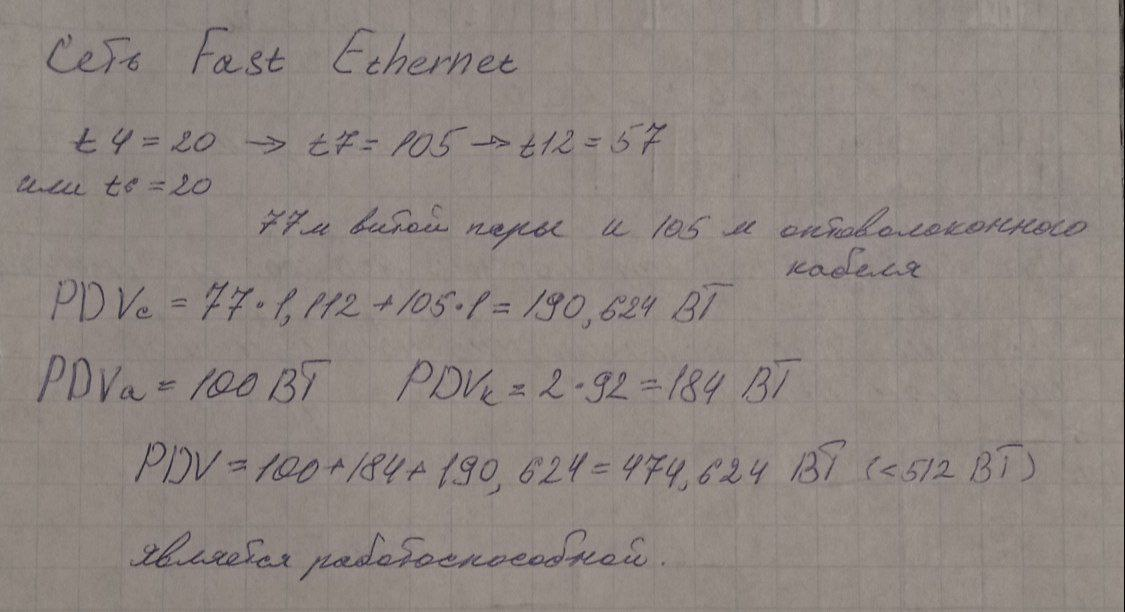 Сеть Fast Ethernet
t4 = 20 → t7 = 105 → t12 = 57
или t6 = 20
77м витой пары и 105 м оптоволоконного
кабеля
PDVc = 77·1,112 + 105·1 = 190,624 BT
PDVa = 100 BT PDVк = 2·92 = 184 BT
PDV = 100 + 184 + 190,624 = 474,624 BT (<512 BT)
является работоспособной.